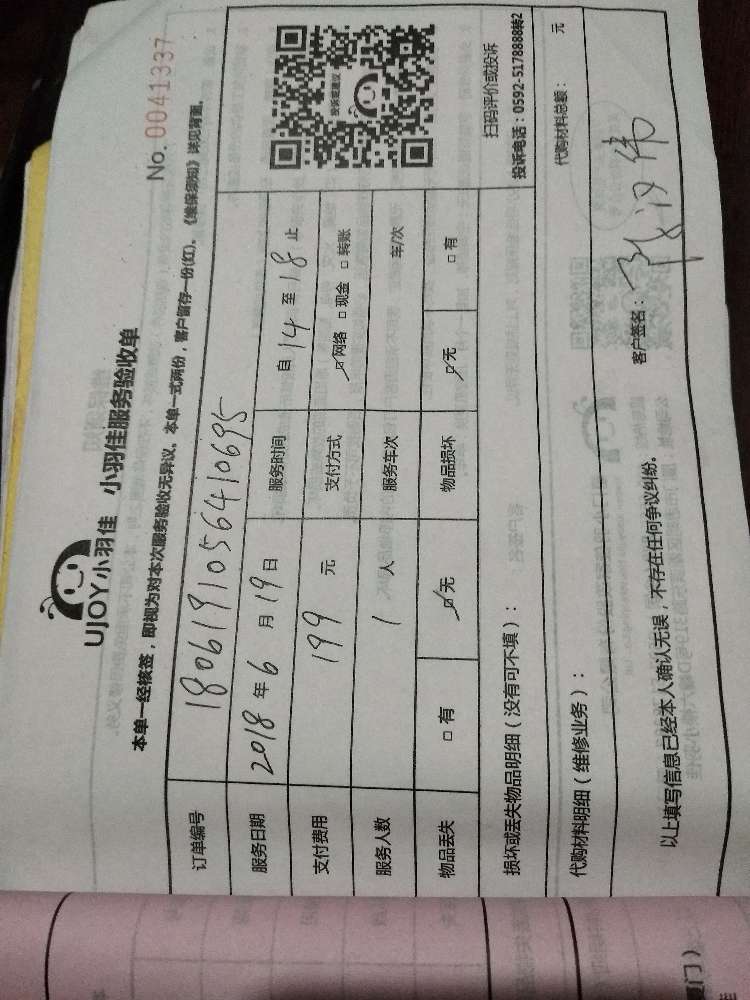 No. 0041337
UJOY小羽佳 小羽佳服务验收单
本单一经核签，即视为对本次服务验收无异议。本单一式两份，客户留存一份(红)。《维保须知》详见背面。
订单编号 1806191056410695
服务日期 2018 年 6 月 19 日 服务时间 自 14 至 18 止
支付费用 199 元 支付方式 ☑网络 □现金 □转账
服务人数 1 人 服务车次 车/次
物品丢失 □有 ☑无 物品损坏 ☑无 □有
投诉或建议
扫码评价或投诉
投诉电话：0592-5178888转2
损坏或丢失物品明细（没有可不填）：
代购材料明细（维修业务）： 代购材料总额： 元
以上填写信息已经本人确认无误，不存在任何争议纠纷。 客户签名：